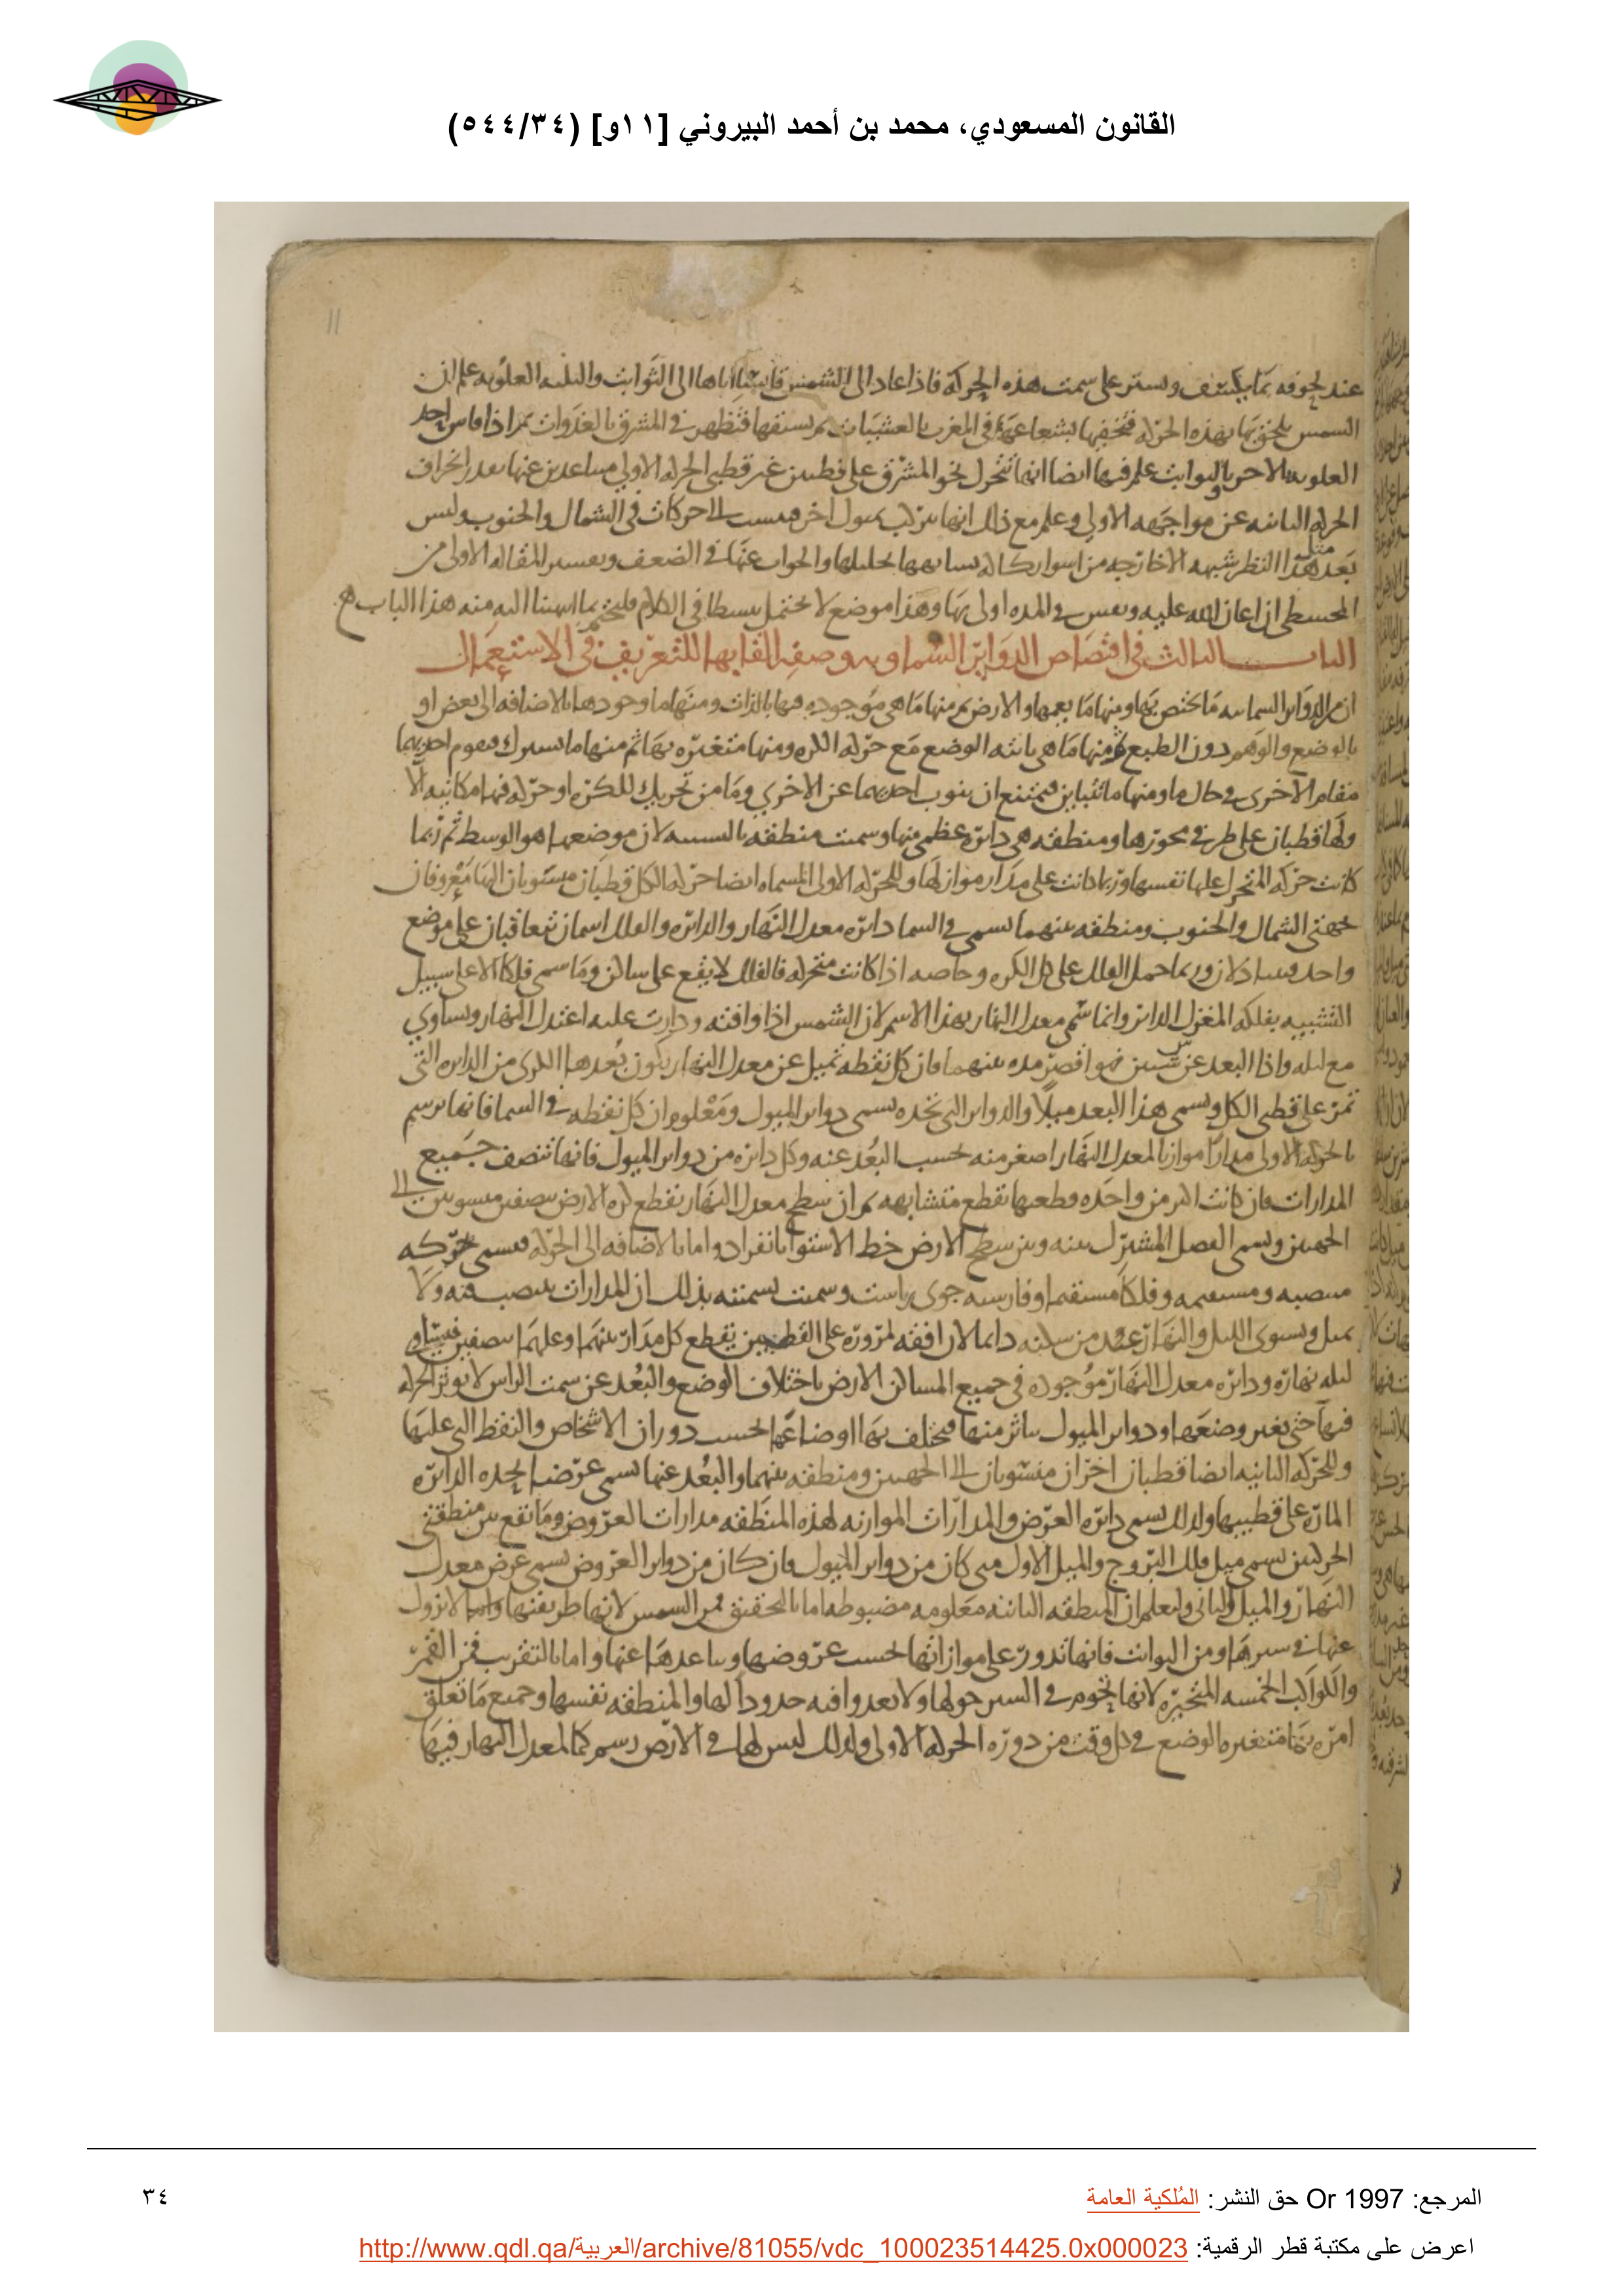 القانون المسعودي، محمد بن أحمد البيروني [١١و] (٥٤٤/٣٤)
11
عند لحوقه بما يكشف ويستر على سمت هذه الحركة فاذا عاد الى الشمس قايسا اياها الى الثوابت والثلثه العلويه علم ان
الشمس تلحق بها بهذه الحركه فتخفيها بشعاعها في المغرب بالعشيات ثم تسبقها فتظهر في المشرق بالغدوات ثم اذا قاس احد
العلويه بالاخر وبالثوابت علم فيها ايضا انها تتحرك نحو المشرق على قطبين غير قطبي الحركه الاولى متباعدين عنها بعد انحراف
الحركه الثانيه عن مواجهه الاولى وعلم مع ذلك انها تتركب بميول اخر الى حركات في الشمال والجنوب وليس
بعد مثل هذا النظر شبهه الا خارجه من اسوار كانه يشابهها تحليلها والجواب عنها في الضعف وتفسير المقاله الاولى من
المجسطي ان اعان الله عليه ونفس في المده اولى بها وهذا موضع لا يحتمل بسطا في الكلام فليختم بما انتهينا اليه منه هذا الباب
الباب الثالث في اقتصاص الدوائر السماويه وصفه القابها للتعريف في الاستعمال
ان من الدوائر السمائيه ما يختص بها ومنها ما يعمها والارض ثم منها ما هي موجوده فيها بالذات ومنها ما وجودها بالاضافه الى بعض او
بالوضع والوهم دون الطبع ومنها ما هي ثابته الوضع مع حركه الكره ومنها متغيره بها ثم منها ما يشترك فيقوم احديهما
مقام الاخرى في حال ما ومنها ما تتباين فيمتنع ان ينوب احديهما عن الاخرى وما من تحريك للكره او حركه فيها مكانيه الا
ولها قطبان على طرفي محورها ومنطقه هي دائره عظمى منها وسميت منطقه بالتشبيه لان موضعها هو الوسط ثم ربما
كانت حركه المتحرك عليها نفسها وربما كانت على مدار مواز لها وللحركه الاولى المسماه ايضا حركه الكل قطبان منسوبان اليها معروفان
بجهتي الشمال والجنوب ومنطقه بينهما تسمى في السما دائره معدل النهار والدائره والفلك اسمان يتعاقبان على موضع
واحد فيتبادلان وربما حمل الفلك على كل الكره وخاصه اذا كانت متحركه فالفلك لا يقع على ساكن وما سمي فلكا الا على سبيل
التشبيه بفلكه المغزل الدائر وانما سمي معدل النهار بهذا الاسم لان الشمس اذا وافته ودارت عليه اعتدل النهار وتساوى
مع ليله واذا البعد عن شيئين هو اقصر مده بينهما فان كل نقطه تميل عن معدل النهار يكون بعدها الذى من الدائره التي
تمر على قطبي الكل ويسمى هذا البعد ميلا والدوائر التي تحده تسمى دوائر الميول ومعلوم ان كل نقطه في السما فانها ترسم
بالحركه الاولى مدارا موازيا لمعدل النهار اصغر منه بحسب البعد عنه وكل دائره من دوائر الميول فانها تنصف جميع
المدارات فان كانت اكثر من واحده قطعها بقطع متشابهه ثم ان سطح معدل النهار يقطع كره الارض بنصفين منسوبين الى
الجهتين ويسمى الفصل المشترك بينه وبين سطح الارض خط الاستوا بانفراد واما بالاضافه الى الحركه فيسمى حركه
منتصبه ومستقيمه وفلكا مستقيما وفارسيه جوى راست وسميت تسميته بذلك ان المدارات تنتصب فيه ولا
تميل ويستوى الليل والنهار عند من سكنه دايما لان افقه لمروره على القطبين يقطع كل مدار بينهما وعليهما بنصفين فيساوى
ليله نهاره ودائره معدل النهار موجوده في جميع المساكن الارض باختلاف الوضع والبعد عن سمت الراس لا يوثر الحركه
فيها حتى يغير وضعها ودوائر الميول تتاثر منها فيختلف بها اوضاعها بحسب دوران الاشخاص والنقط التي عليها
وللحركه الثانيه ايضا قطبان اخران منسوبان الى الجهتين ومنطقه بينهما والبعد عنها يسمى عرضا تحده الدائره
الماره على قطبيها ولذلك تسمى دائره العرض والمدارات الموازيه لهذه المنطقه مدارات العروض وما تقع بين منطقتي
الحركتين يسمى ميل فلك البروج والميل الاول متى كان من دوائر الميول فان كان من دوائر العروض يسمى عرض معدل
النهار والميل الثاني وليعلم ان المنطقه الثانيه معلومه مضبوطه اما بالتحقيق فمن الشمس لانها طريقتها لا تزول
عنها في سيرها ومن الثوابت فانها تدور على موازاتها بحسب عروضها وتباعدها عنها واما بالتقريب فمن القمر
والكواكب الخمسه المتحيره لانها تحوم في السير حولها ولا تعدو افيه حدودا لها والمنطقه نفسها وجميع ما تعلق
امره بها متغيره الوضع في كل وقت من دوره الحركه الاولى ولذلك ليس لها في الارض رسم كما لمعدل النهار فيها
المرجع: Or 1997 حق النشر: المُلكية العامة
٣٤
اعرض على مكتبة قطر الرقمية: http://www.qdl.qa/العربية/archive/81055/vdc_100023514425.0x000023